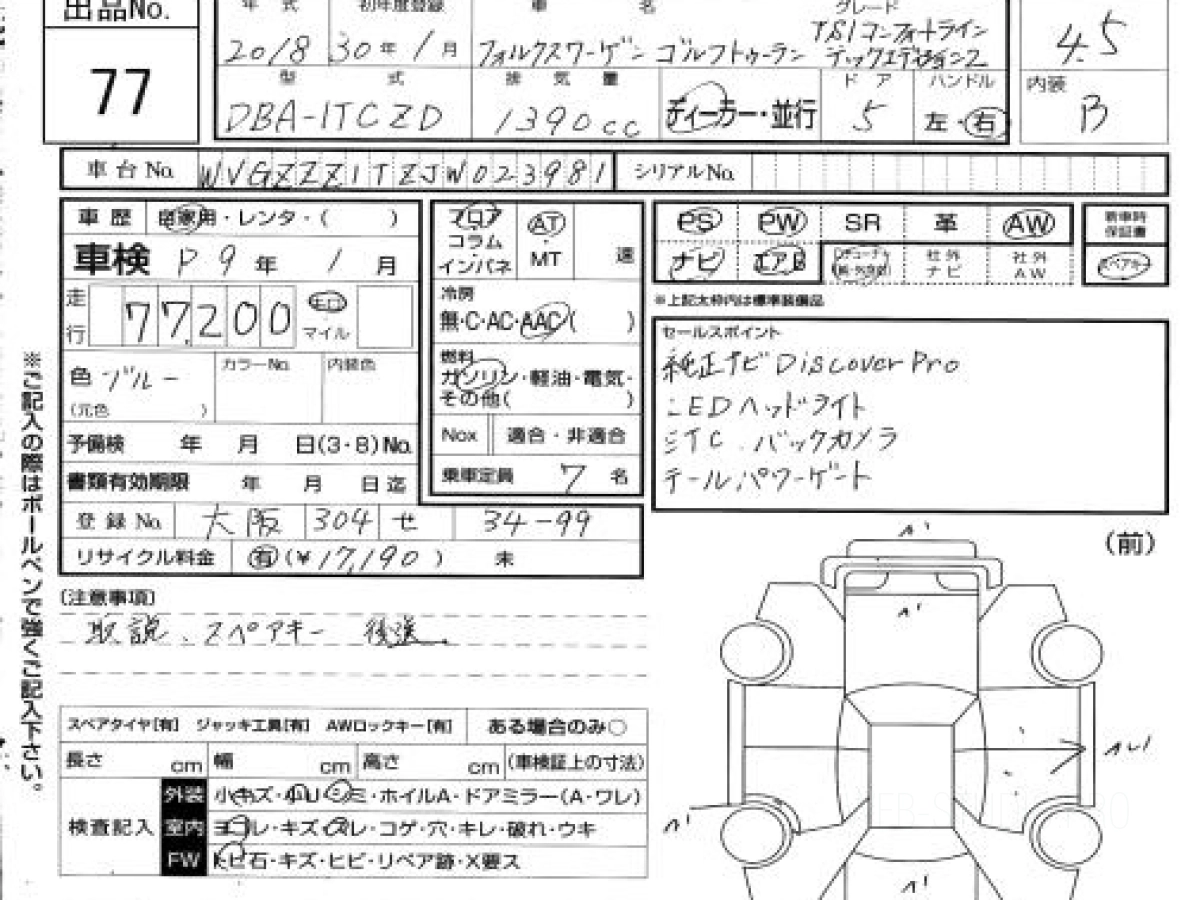 出品No.
77
年 式
初年度登録
車 名
グレード
2018
30年 1月
フォルクスワーゲン ゴルフトゥーラン
TSIコンフォートライン
テックエディション2
4.5
型 式
排 気 量
ディーラー・並行
ド ア
ハンドル
内装
DBA-1TCZD
1390cc
5
左・右
B
車台No.
WVGZZZ1TZJW023981
シリアルNo.
車歴
自家用・レンタ・( )
車検 R9年 1月
走行
77,200
キロ
マイル
色 ブルー
(元色 )
カラーNo.
内装色
予備検 年 月 日(3・8)No.
書類有効期限 年 月 日迄
登録No. 大阪 304 せ 34-99
リサイクル料金 有(¥17,190) 未
フロア
コラム
インパネ
AT
・
MT
速
冷房
無・C・AC・AAC( )
燃料
ガソリン・軽油・電気・
その他( )
Nox 適合・非適合
乗車定員 7名
PS PW SR 革 AW
ナビ エアB
社外
ナビ
社外
AW
新車時
保証書
スペアキー
※上記太枠内は標準装備品
セールスポイント
純正ナビ Discover Pro
LEDヘッドライト
ETC. バックカメラ
テールパワーゲート
※ご記入の際はボールペンで強くご記入下さい。
〔注意事項〕
取説、スペアキー 後送。
スペアタイヤ[有] ジャッキ工具[有] AWロックキー[有]
ある場合のみ○
長さ cm 幅 cm 高さ cm (車検証上の寸法)
検査記入
外装 小キズ・小U・シミ・ホイルA・ドアミラー(A・ワレ)
室内 ヨゴレ・キズ・スレ・コゲ・穴・キレ・破れ・ウキ
FW トビ石・キズ・ヒビ・リペア跡・X要ス
(前)
A1
A1
AU1
A1
A1